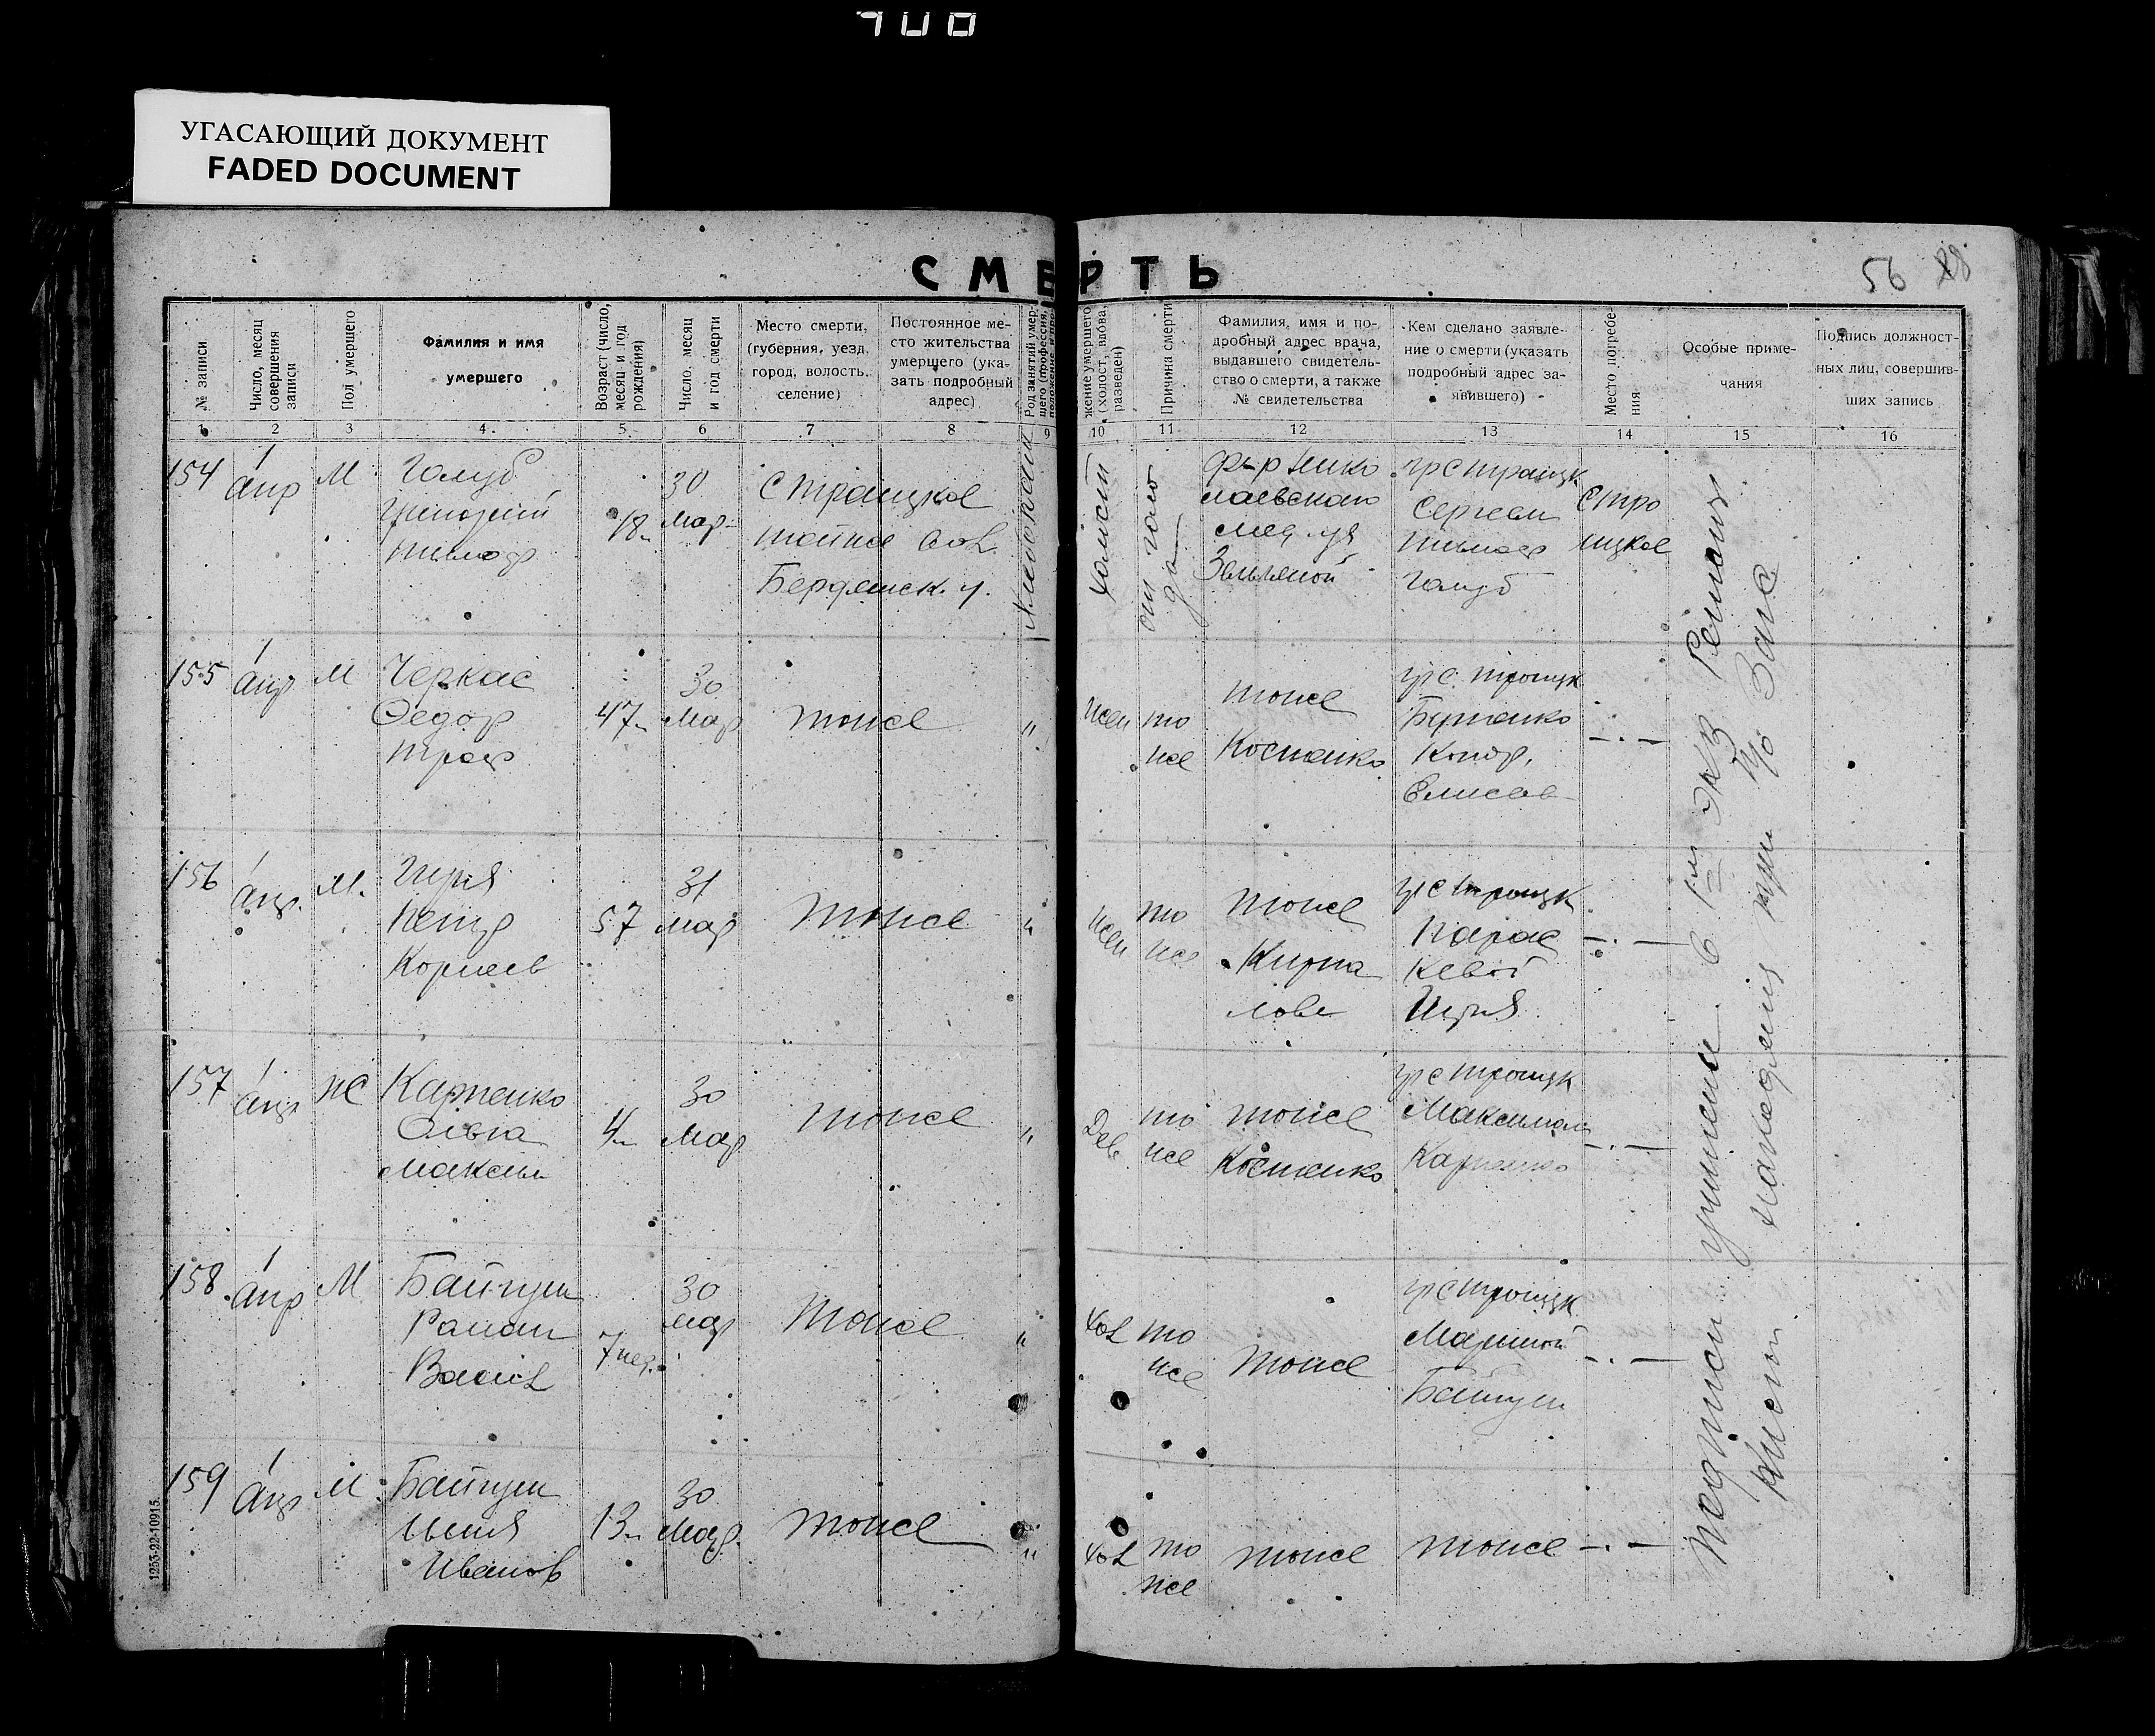 908
УГАСАЮЩИЙ ДОКУМЕНТ
FADED DOCUMENT
СМЕРТЬ
56 88
№ записи
Число, месяц совершения записи
Пол умершего
Фамилия и имя
умершего
Возраст (число, месяц и год рождения)
Число, месяц и год смерти
Место смерти,
(губерния, уезд,
город, волость,
селение)
Постоянное ме-
сто жительства
умершего (ука-
зать подробный
адрес)
Род занятий умер-
шего (профессия,
жение умершего
(холост, вдова,
разведен)
Причина смерти
Фамилия, имя и по-
дробный адрес врача,
выдавшего свидетель-
ство о смерти, а также
№ свидетельства
Кем сделано заявле-
ние о смерти (указать
подробный адрес за-
явившего)
Место погребе-
ния
Особые приме-
чания
Подпись должност-
ных лиц, совершив-
ших запись
1 2 3 4 5 6 7 8 9 10 11 12 13 14 15 16
154
1 апр
М
Голуб
Григорий
Тимоф
18
30 мар
С Троицкое
тойже вол.
Бердянск. у.
Хлебопаш
холост
от голо
да
Фьр Нико
лаевского
мед. уч
Зельной
гр с Троицк
Сергеем
Тимоф
Голуб
С Тро
ицкое
155
1 апр
М
Черкас
Федор
Троф
47 л
30 мар
тоже
"
жен
то
же
тоже
Костенко
гр с. Троицк
Бутенко
Конд.
Елисав
— . —
156
1 апр.
М.
Гиря
Петр
Корнеев
57
31 мар
тоже
"
жен
то
же
тоже
Кирпа
лове
гр с Троицк
Парас
кевой
Гиря
— . —
157
1 апр
Ж
Карпенко
Ольга
Максим
4 л
30 мар
тоже
"
Дев
то
же
тоже
Костенко
гр с Троицк
Максимом
Карпенко
— . —
158
1 апр
М
Байгуш
Роман
Васил
7 нед.
30 мар
тоже
"
хол
то
же
тоже
гр с Троицк
Марией
Байгуш
— . —
159
1 апр
М
Байгуш
Илья
Иванов
13 л
30 мар.
тоже
"
хол
то
же
тоже
тоже
— . —
подписи
в 1м экз
Загс
1253-22-10915.